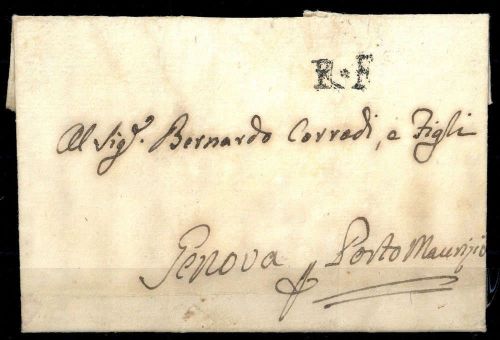 R.F
Al Sig.r Bernardo Corradi, e Figli
Genova p Porto Maurizio